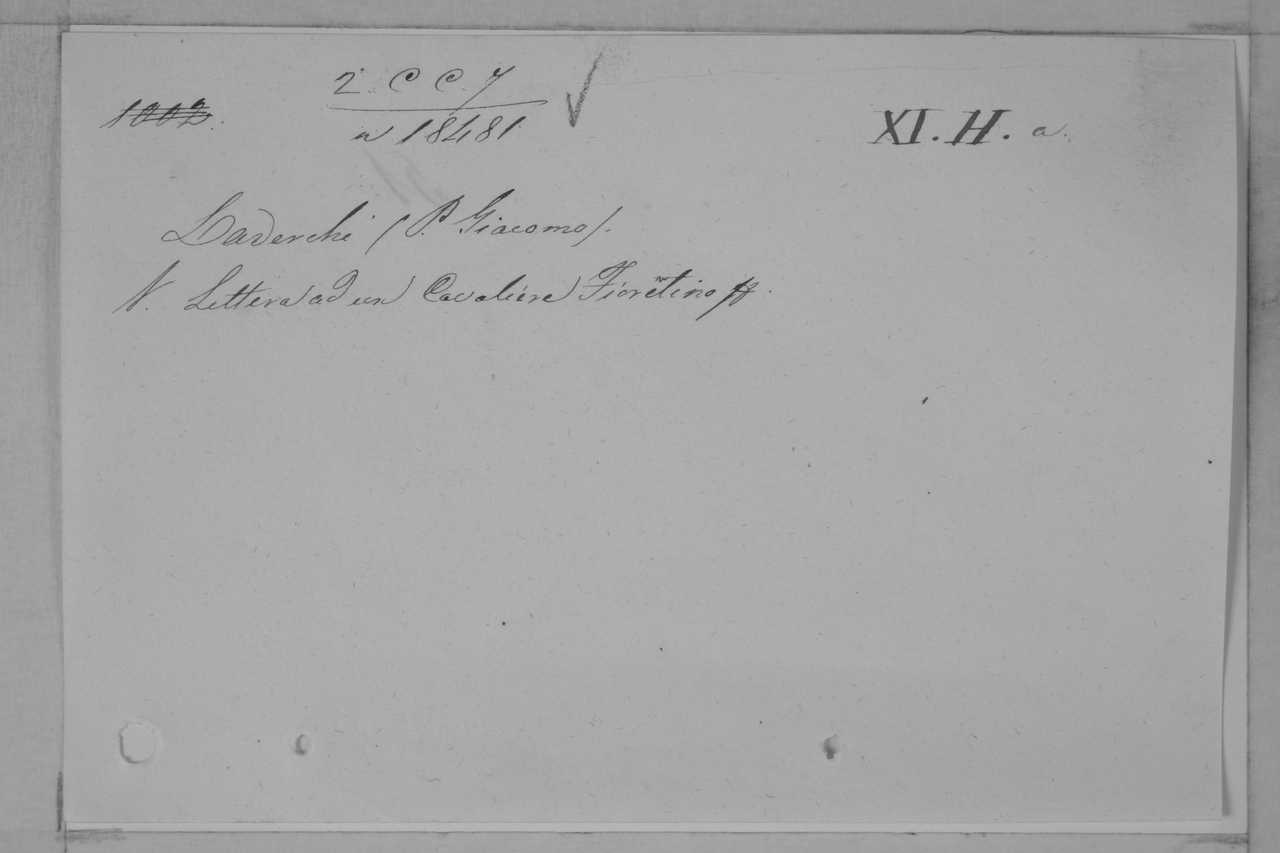 2. C C. 7
1002.
n 18481
XI. H. a.
Laderchi (P. Giacomo).
V. Lettera ad un Cavaliere Fiorentino